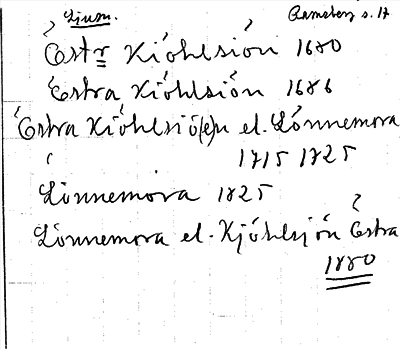 Ljusn. Ramsberg s. 17
Östr Kiöhlsiön 1680
Östra Kiöhlsiön 1686
Östra Kiöhlsiö(e)n el. Lönnemora
1715 1825
Lönnemora 1825
Lönnemora el. Kjöhlsjön Östra
1880